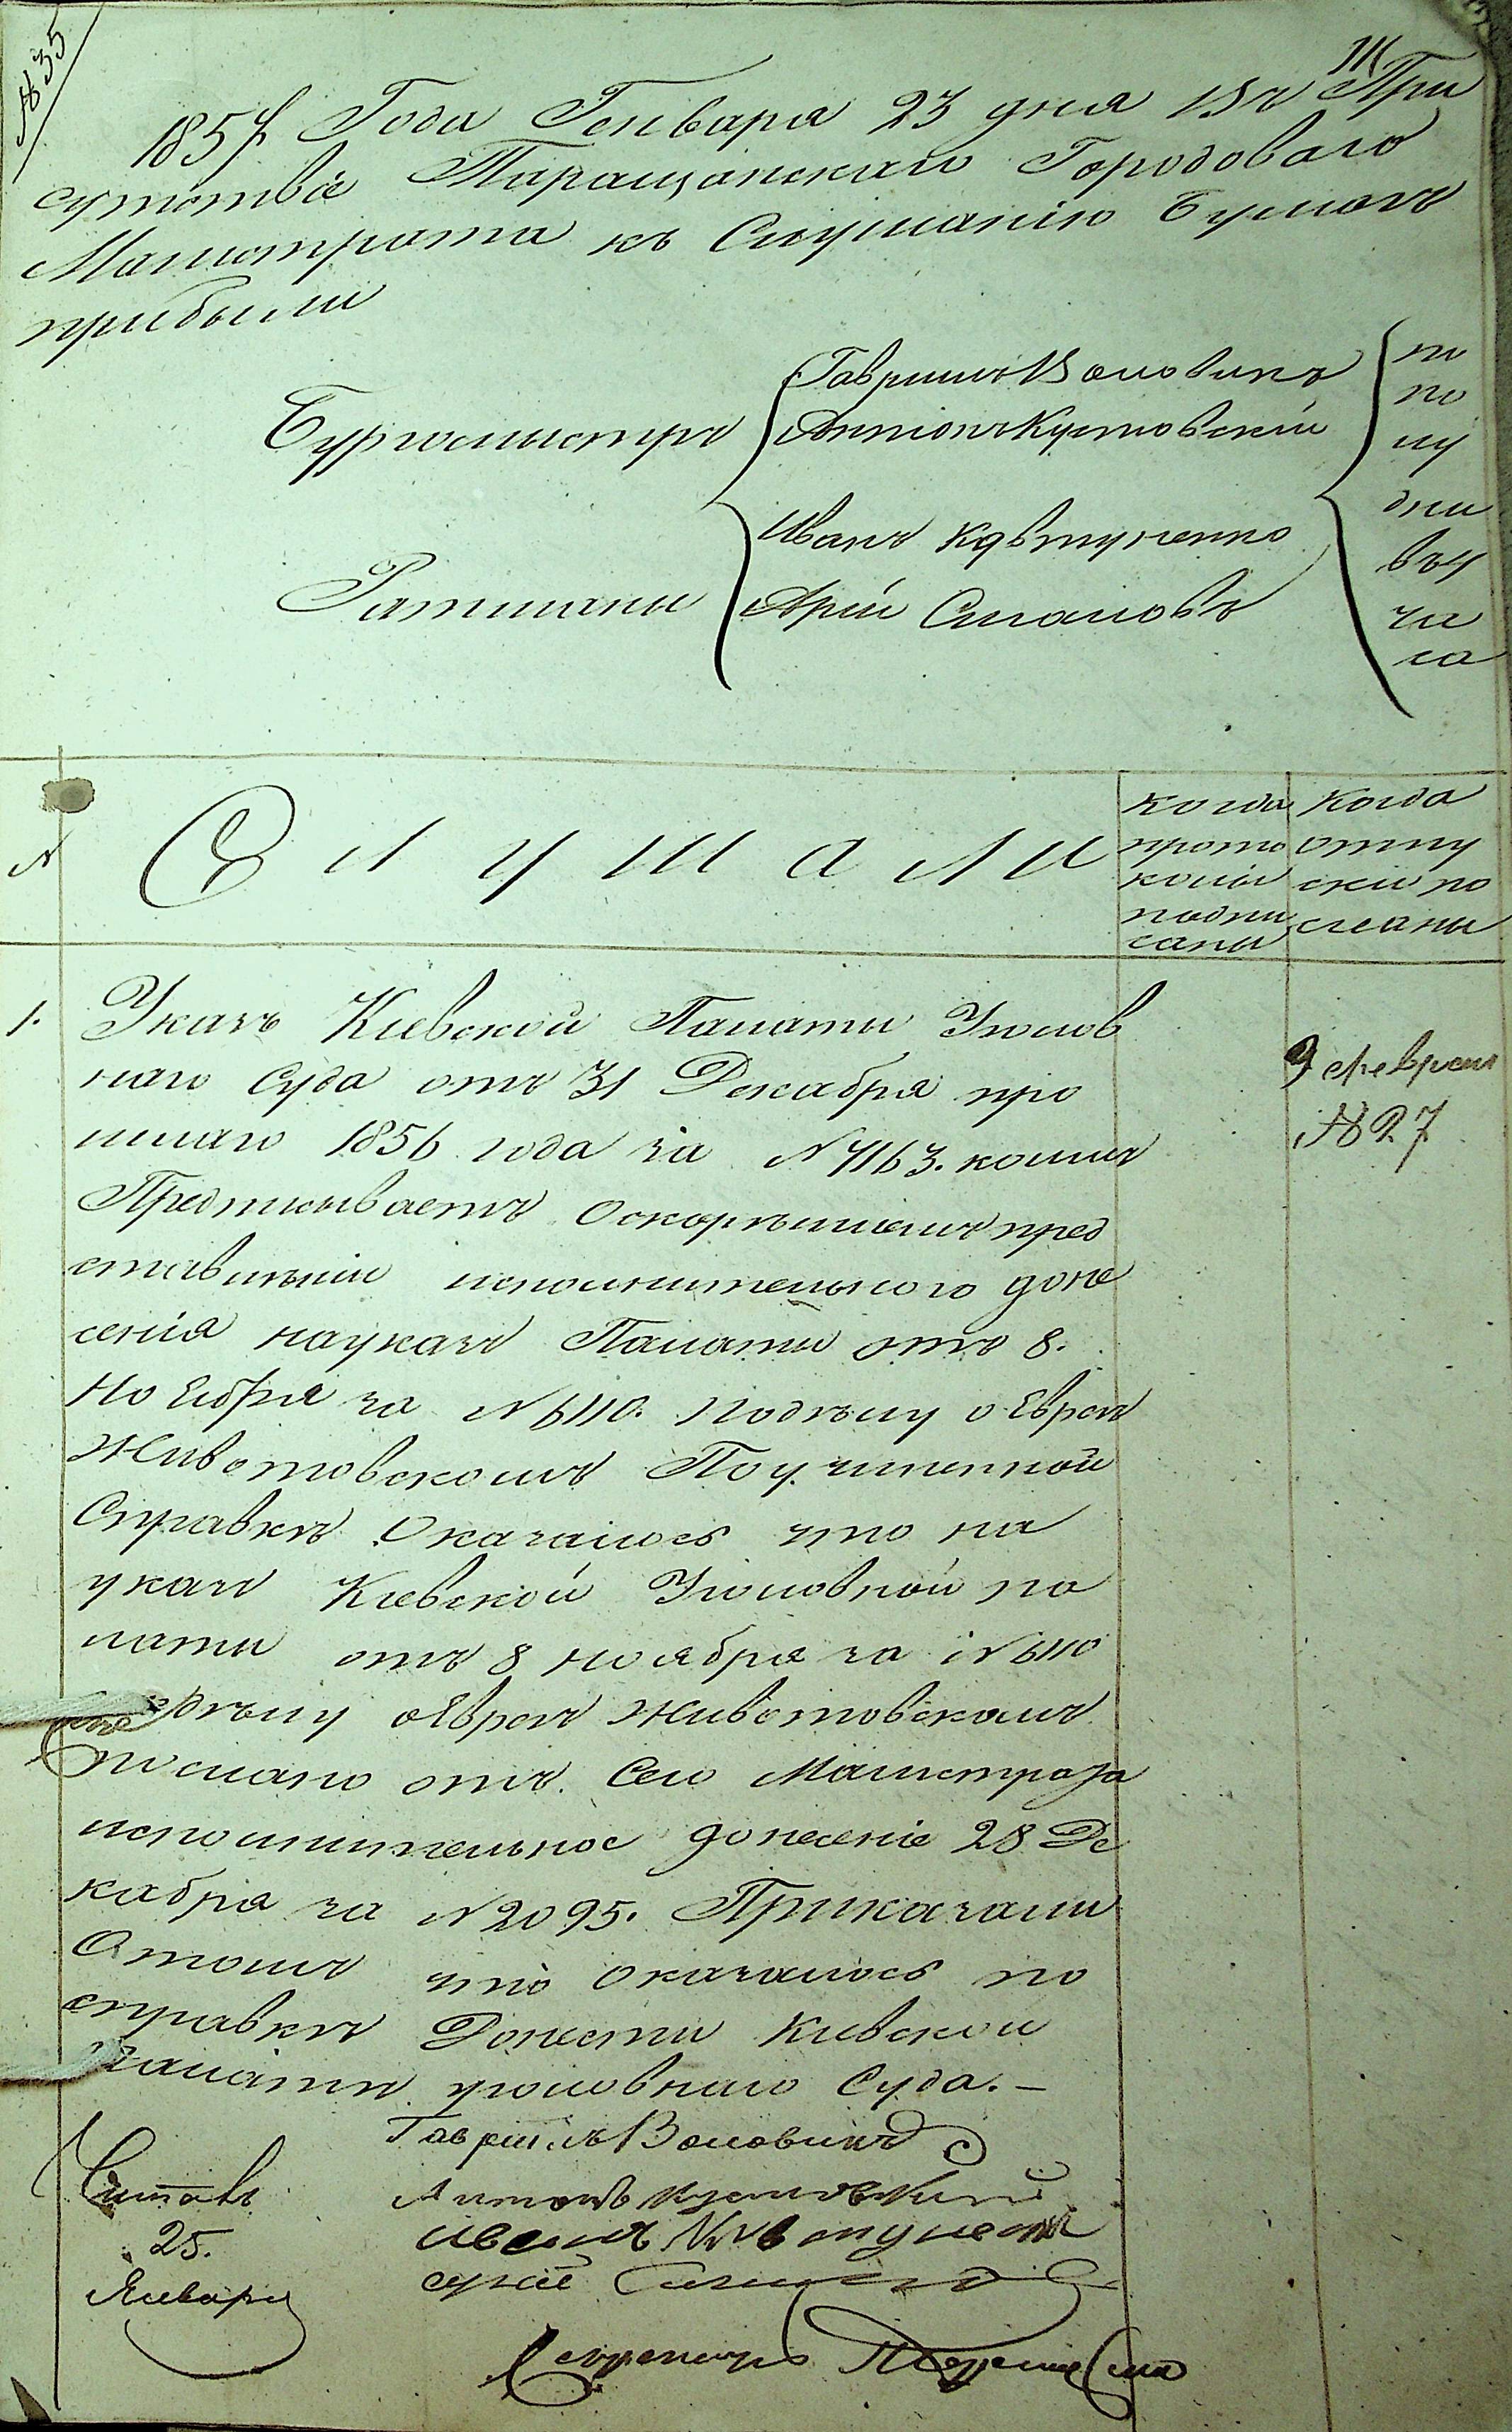 №35
1857 Года Генваря 23 дня Въ При
сутствіе Таращанскаго Городоваго
Магистрата къ Слушанію бумагъ
прибыли
Бургомистръ
Гавриилъ Воловикъ
Антонъ Кустовскій
Ратманы
Иванъ Ковтуненко
Арій Смаловъ
по
по
лу
дни
въ 4
ча
са
№
Слушали
когда
прото
колы
подпи
саны
Когда
отпу
ски по
сланы
1.
Указъ Кіевской Палаты Уголов
наго Суда отъ 31 Декабря про
шлаго 1856 года за №7163. коимъ
Предписываетъ Оскорѣйшемъ пред
ставленіи исполнительного доне
сенія науказъ Палаты отъ 8.
Ноября за №6110. Подѣлу о Евреѣ
Животовскомъ По учиненной
Справкѣ Оказалось что на
указъ Кіевской Уголовной па
латы отъ 8 ноября за №6110
подѣлу оЕвреѣ Животовскомъ
послано отъ Сего Магистрата
исполнительное донесеніе 28 Де
кабря за №2095. Приказали
Отомъ что оказалось по
справкѣ Донести Кіевской
Палаты уголовнаго Суда.–
9 февраля
№ 27
Гавріилъ Воловикъ
Антонъ Кустовскій
Иванъ Ковтуненко
Читалъ
25.
Января
Секретарь